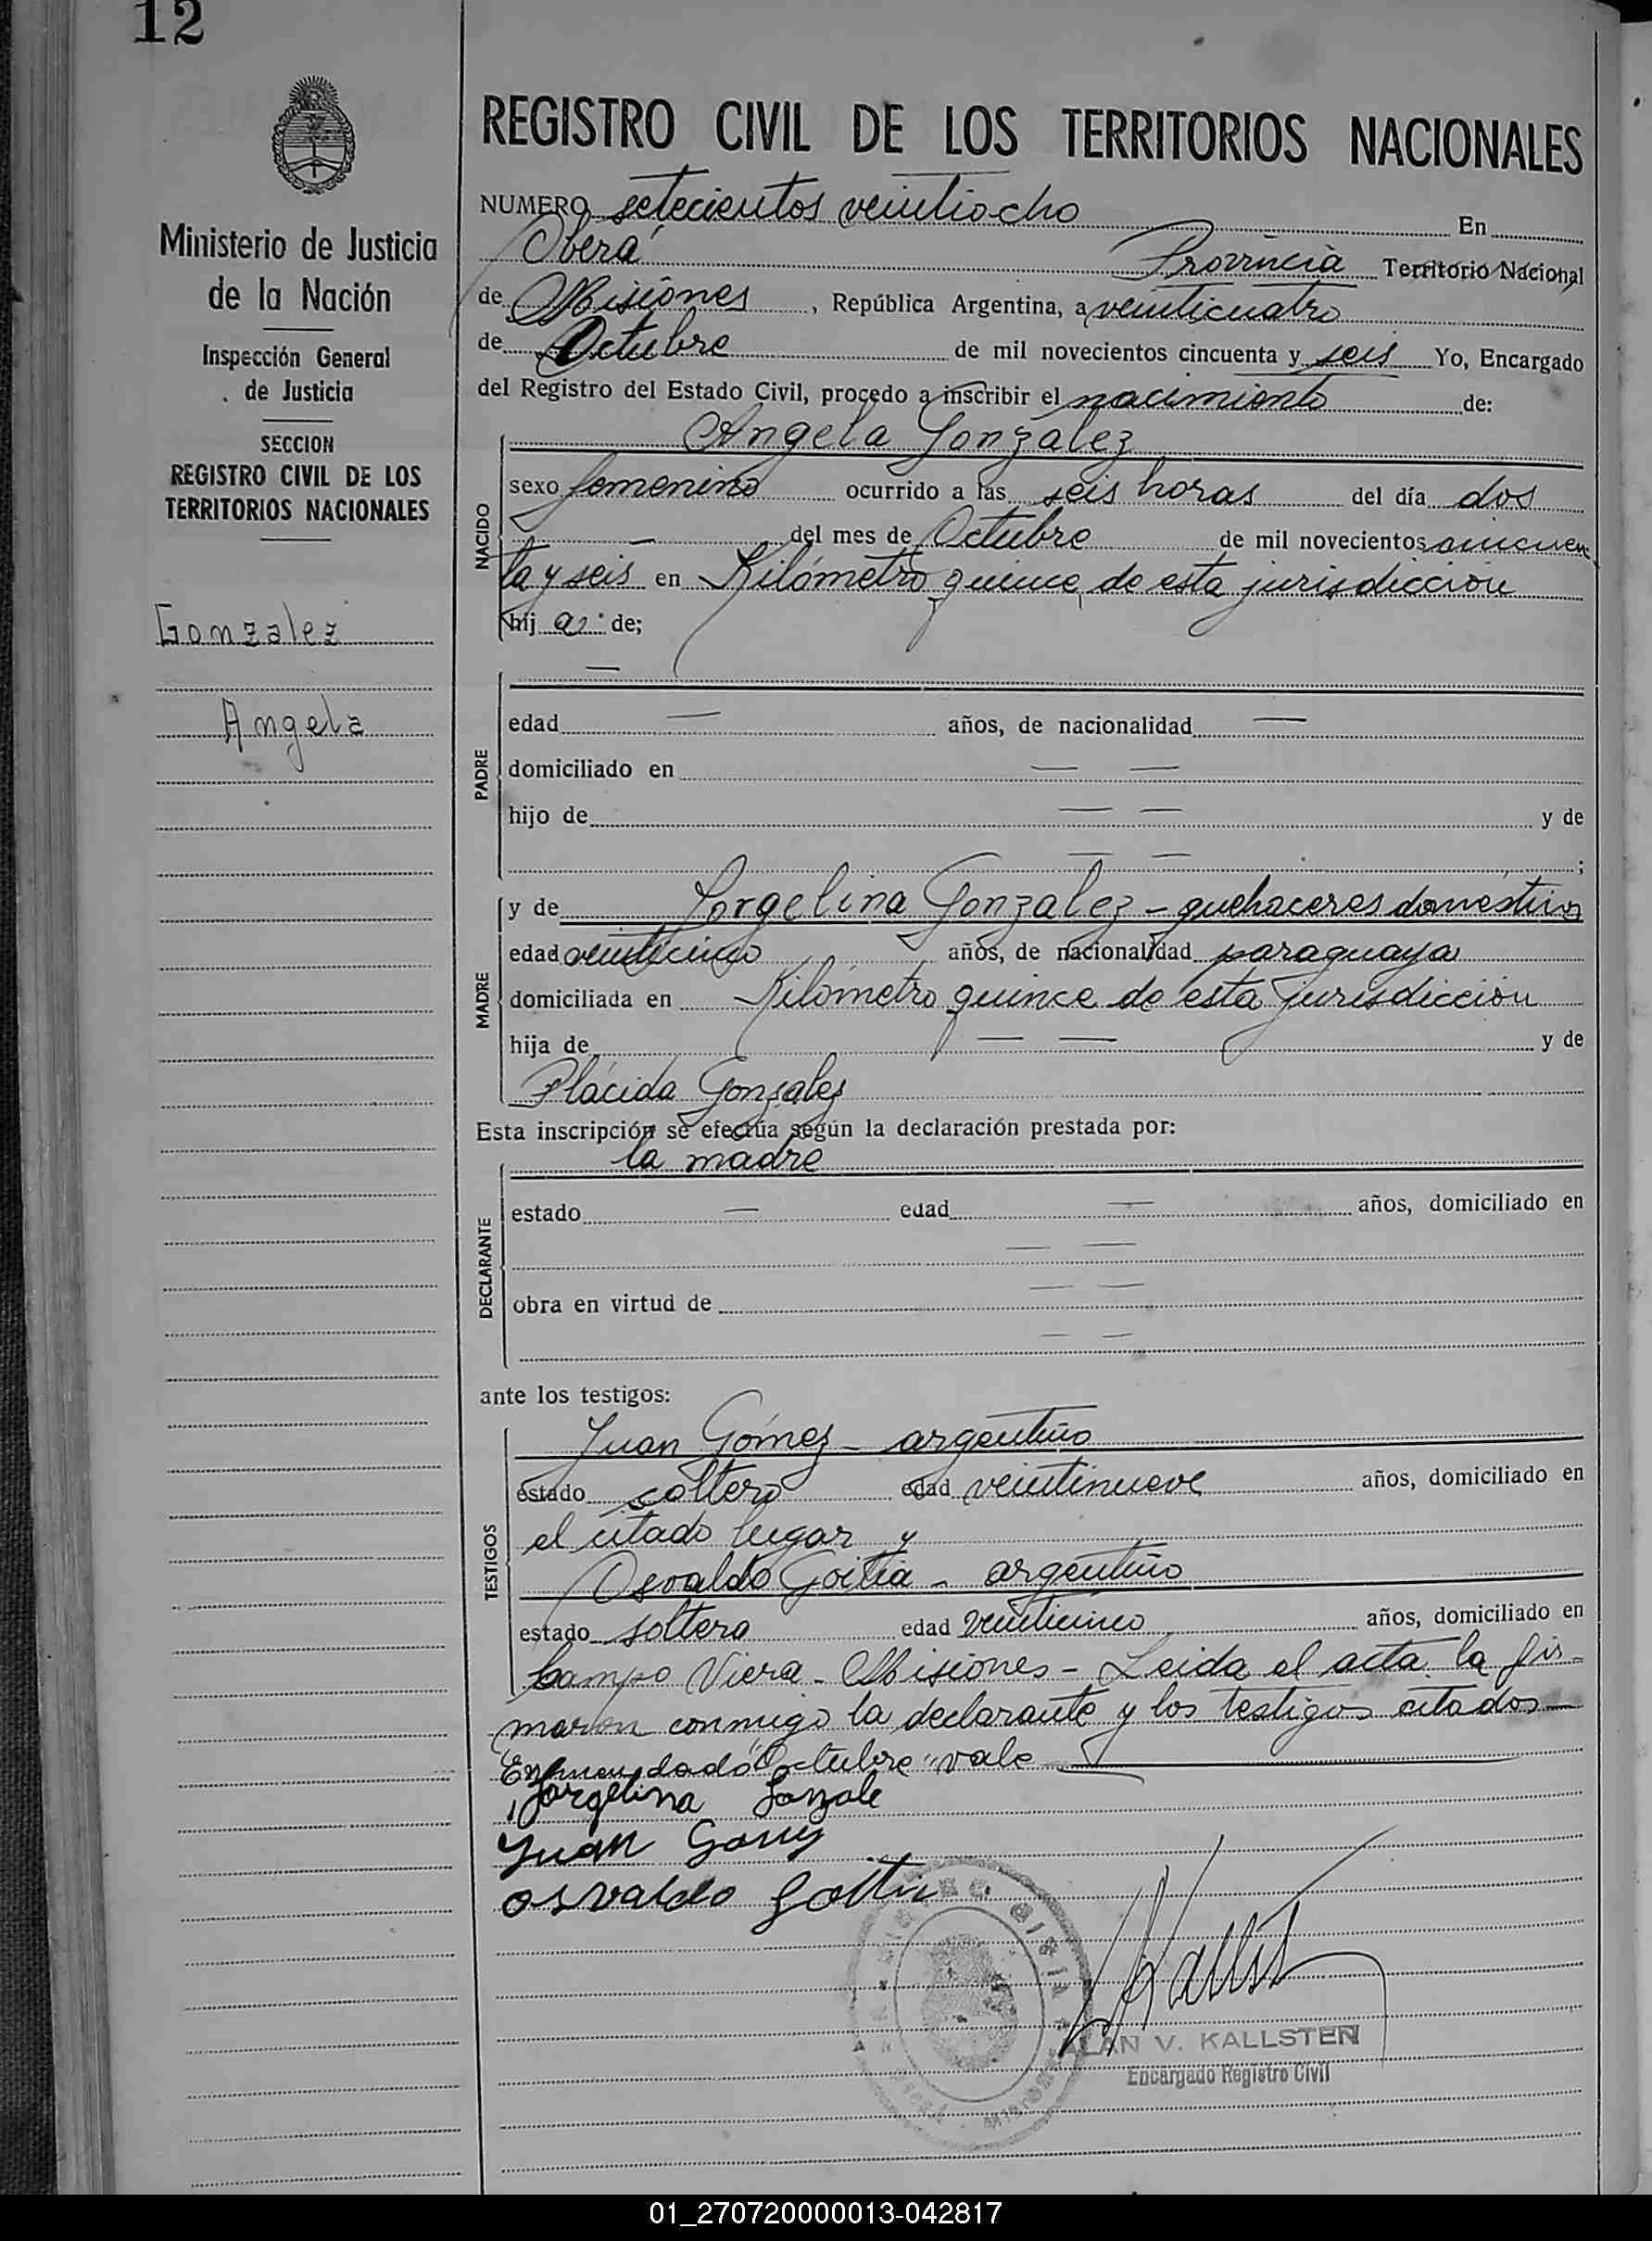 12
REGISTRO CIVIL DE LOS TERRITORIOS NACIONALES
Ministerio de Justicia
de la Nación
Inspección General
de Justicia
SECCION
REGISTRO CIVIL DE LOS
TERRITORIOS NACIONALES
Gonzalez
Angela
NUMERO setecientos veintiocho En
Oberá Provincia Territorio Nacional
de Misiones, República Argentina, a veinticuatro
de Octubre de mil novecientos cincuenta y seis Yo, Encargado
del Registro del Estado Civil, procedo a inscribir el nacimiento de:
Angela Gonzalez
NACIDO
sexo femenino ocurrido a las seis horas del día dos
— del mes de Octubre de mil novecientos cincuen
ta y seis en Kilómetro quince de esta jurisdicción
hij a de;
—
PADRE
edad — años, de nacionalidad —
domiciliado en — —
hijo de — — y de
— — ;
MADRE
y de Jorgelina Gonzalez - quehaceres domésticos
edad veinticinco años, de nacionalidad paraguaya
domiciliada en Kilómetro quince de esta jurisdicción
hija de — — y de
Plácida Gonzalez
Esta inscripción se efectúa según la declaración prestada por:
la madre
DECLARANTE
estado — edad — años, domiciliado en
— —
obra en virtud de — —
— —
ante los testigos:
TESTIGOS
Juan Gómez - argentino
estado soltero edad veintinueve años, domiciliado en
el citado lugar y
Osvaldo Goitia - argentino
estado soltero edad veinticinco años, domiciliado en
Campo Viera - Misiones - Leida el acta la fir-
maron conmigo la declarante y los testigos citados —
Enmendado "Octubre" vale —
Jorgelina Gonzale
Juan Gomez
osvaldo Goitia
ALAN V. KALLSTEN
Encargado Registro Civil
01_270720000013-042817